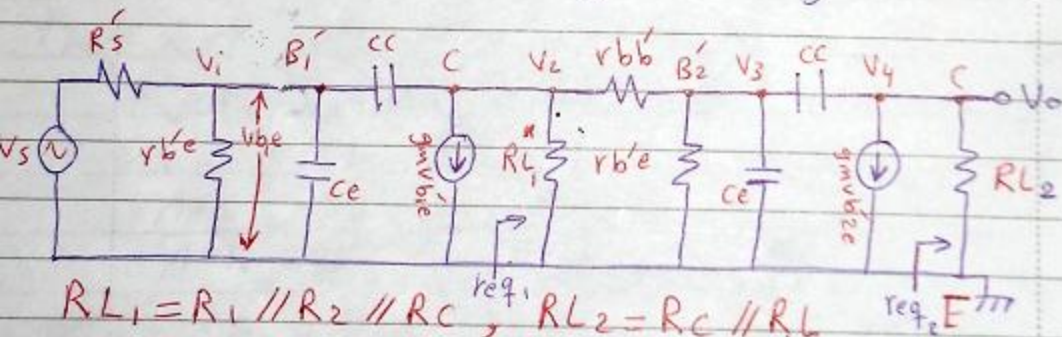 R's Vi B1' cc C V2 rbb' B2' V3 cc V4 C Vo
Vs rb'e Vb'1e ce gmvb'1e RL1 rb'e ce gmvb'2e RL2
req1 req2 E
RL1 = R1 // R2 // RC , RL2 = RC // RL